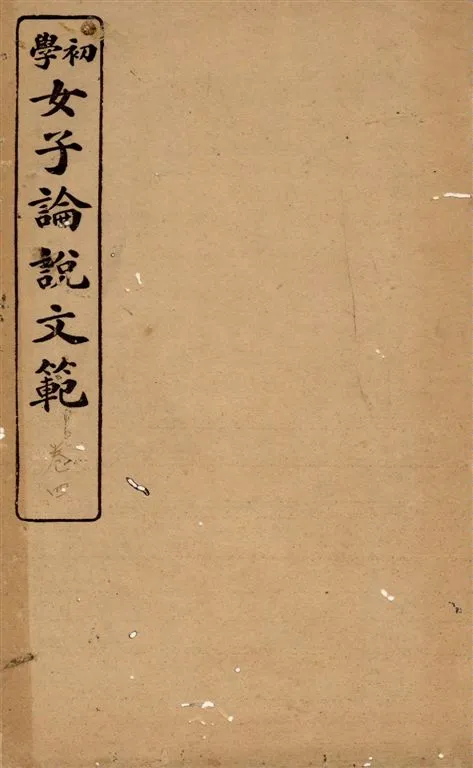 初學女子論說文範
卷四